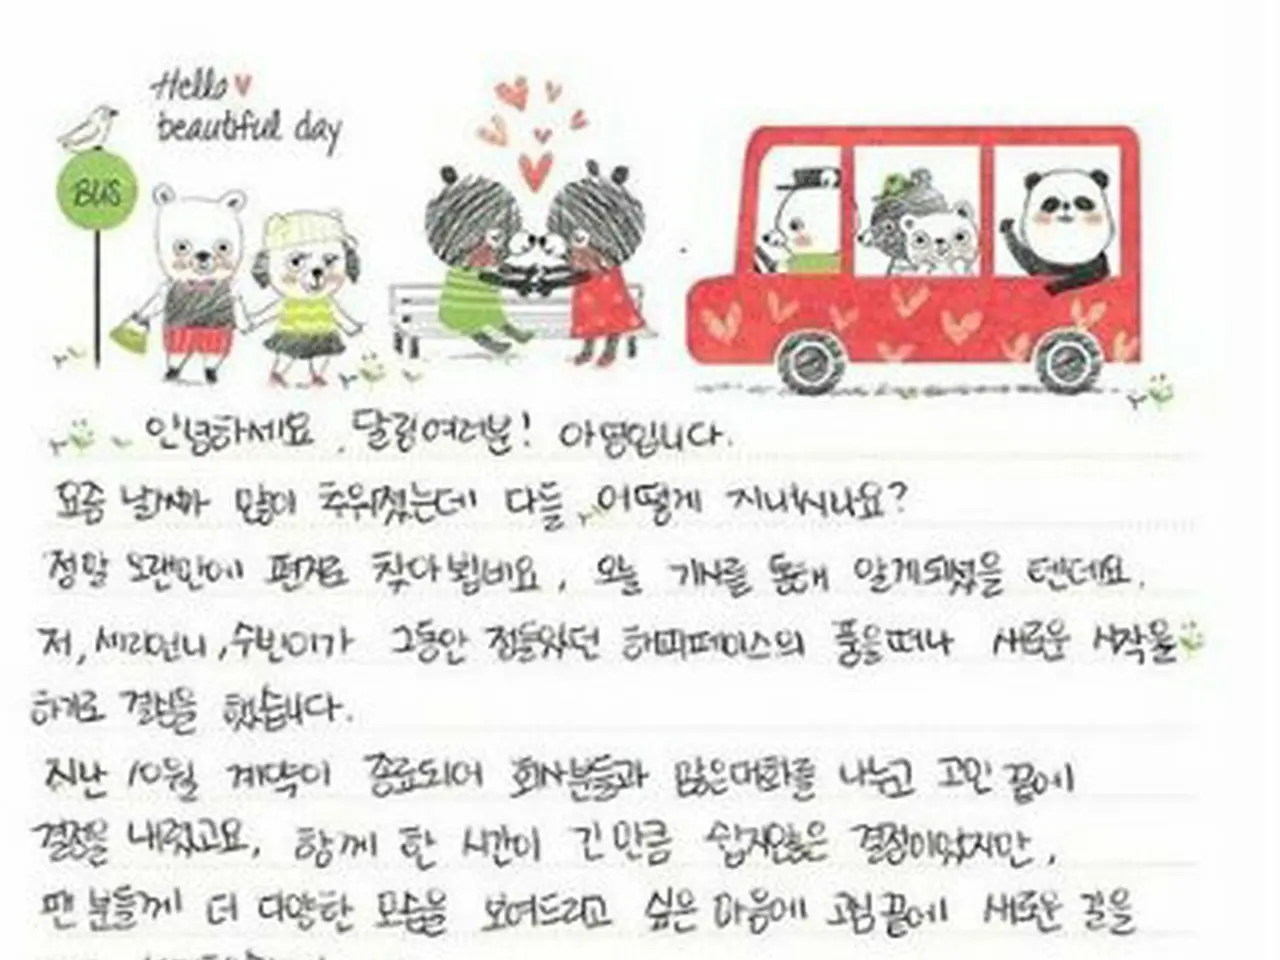 Hello
beautiful day
BUS
안녕하세요, 달링여러분! 아영입니다.
요즘 날씨가 많이 추워졌는데 다들 어떻게 지내시나요?
정말 오랜만에 편지로 찾아뵙네요, 오늘 기사를 통해 알게되셨을 텐데요.
저, 세리언니, 수빈이가 그동안 정들었던 해피페이스의 품을떠나 새로운 시작을
하기로 결심을 했습니다.
지난 10월 계약이 종료되어 회사분들과 많은대화를 나눴고 고민 끝에
결정을 내렸고요, 함께 한 시간이 긴 만큼 쉽지않은 결정이었지만,
팬 분들께 더 다양한 모습을 보여드리고 싶은 마음에 고심끝에 새로운 길을